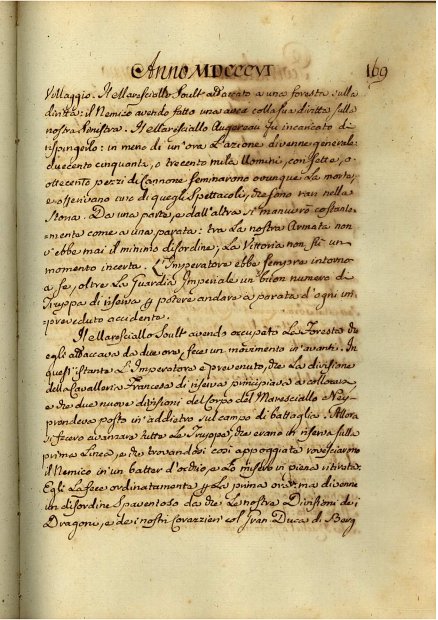 Anno MDCCCVI 169
Villaggio. Il Maresciallo Soult attaccato a una foresta sulla
diritta: il Nemico avendo fatto una diritta sulla
nostra Sinistra. Il Maresciallo Augereau fu incaricato di
rispingerlo: in meno di un'ora l'azione divenne generale:
duecento cinquanta, o trecento mila Uomini, con sette, o
ottocento pezzi di Cannone seminarono ovunque la morte,
e offerivano uno di quegli Spettacoli, che sono rari nella
Storia. Da una parte, e dall'altra si manuvrò costante-
=mente come a una parata: tra la nostra Armata non
v'ebbe mai il minimo disordine; la Vittoria non fù un
momento incerta. L'Imperatore ebbe sempre intorno
a se, oltre la Guardia Imperiale un buon numero di
Truppa di riserva p potere andare a parata d'ogni im-
=preveduto accidente.
Il Maresciallo Soult avendo occupato la Foresta che
egli attaccava da due ore, fece un movimento in avanti. In
quest'istante l'Imperatore è prevenuto, che la divisione
della Cavalleria Francese di riserva principiava a collocarsi,
e che due nuove divisioni del Corpo del Maresciallo Ney
prendeva posto in addietro sul campo di battaglia. Allora
si fecero avanzare tutte le Truppe, che erano in riserva sulla
prima Linea, e che trovandosi così appoggiata rovesciarono
il Nemico in un batter d'occhio, e lo misero in piena ritirata.
Egli la fece ordinatamente p la prima ora; ma divenne
un disordine Spaventoso da che le nostre Divisioni dei
Dragoni, e dei nostri Corazzieri col Gran Duca di Berg